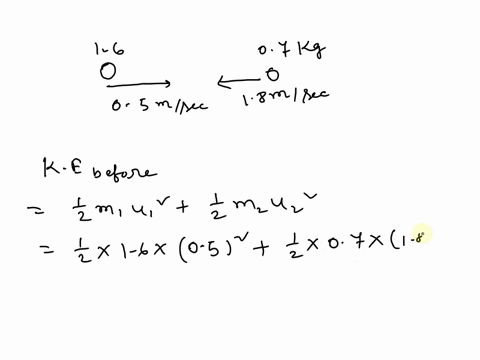 1.6 0.7 Kg
0.5 m/sec 1.8 m/sec
K.E before
= 1/2 m₁ u₁² + 1/2 m₂ u₂²
= 1/2 × 1.6 × (0.5)² + 1/2 × 0.7 × (1.8